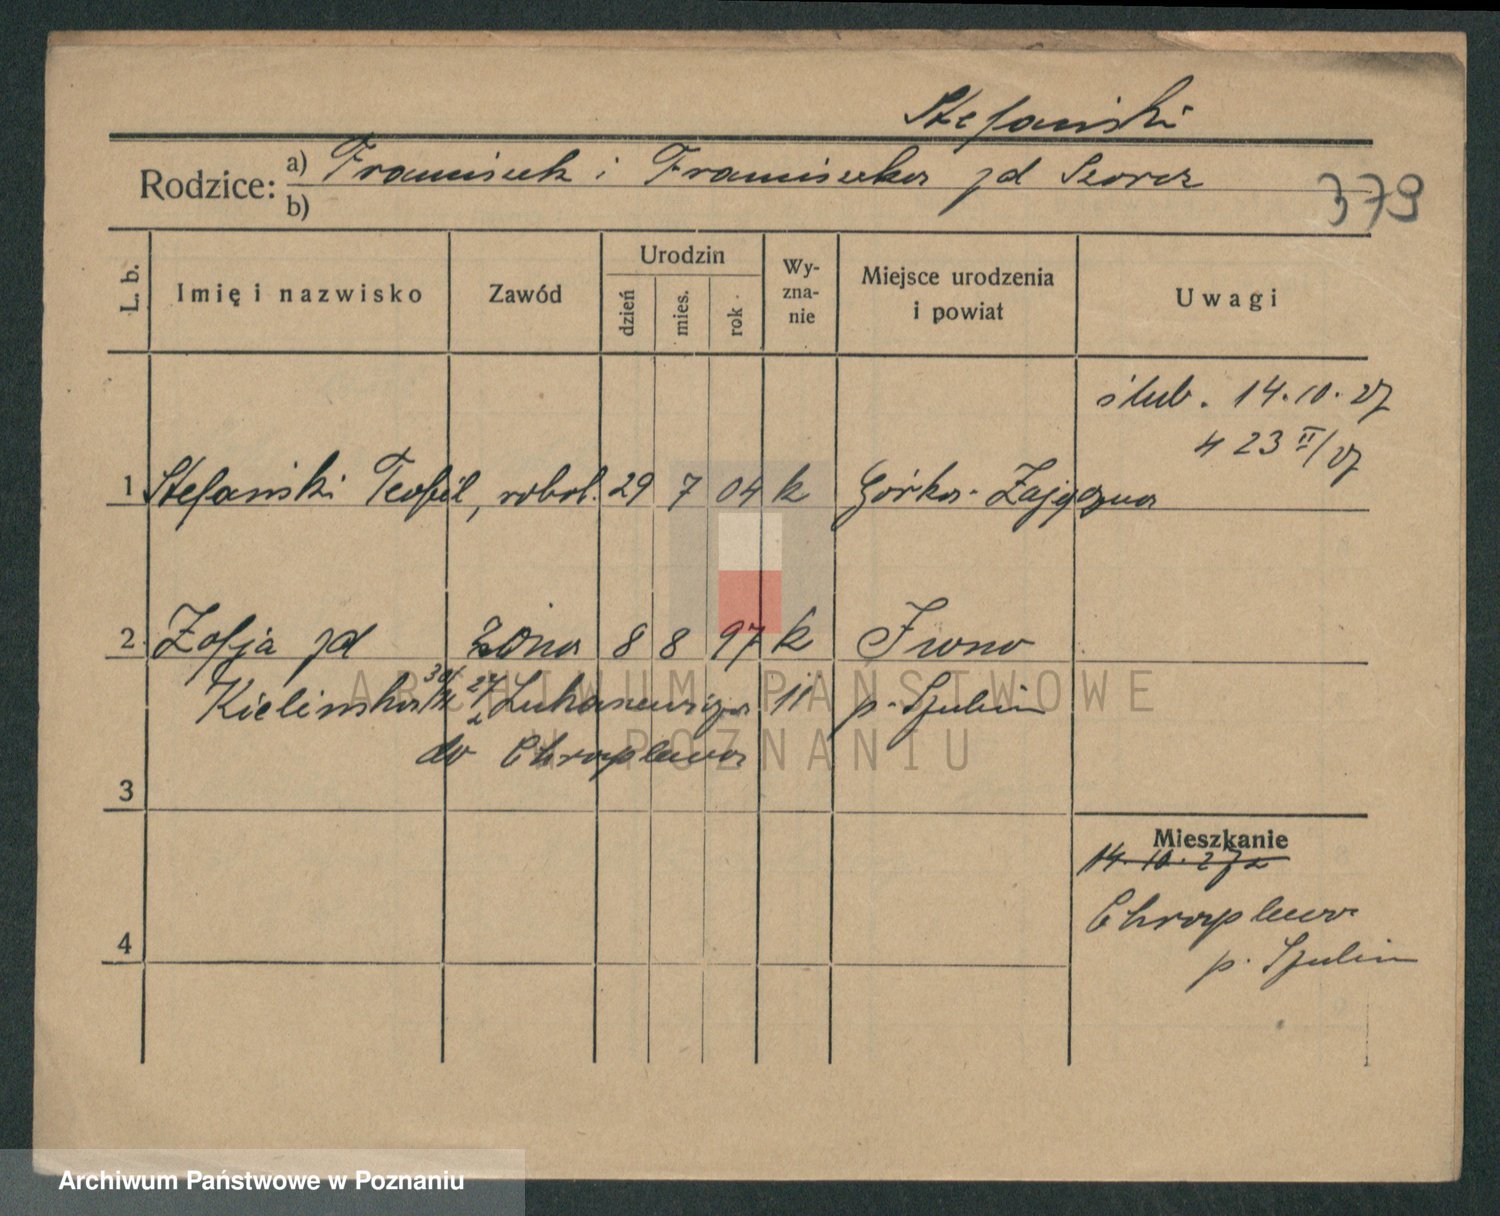 Stefański
Rodzice: a) Franciszek i Franciszka zd
b)
379
L. b. Imię i nazwisko Zawód Urodzin dzień mies. rok Wyznanie Miejsce urodzenia i powiat Uwagi
ślub. 14.10.27
23 II/27
1 Stefański Teofil, robot. 29 7 04 k Górka-Zajączna
2 Zofja zd żona 8 8 97 k Iwno
Kielińska 11 p. Szubin
do Chraplewa
3
Mieszkanie
14.10.27
Chraplewo
4
p. Szubin
ARCHIWUM PAŃSTWOWE
W POZNANIU
Archiwum Państwowe w Poznaniu